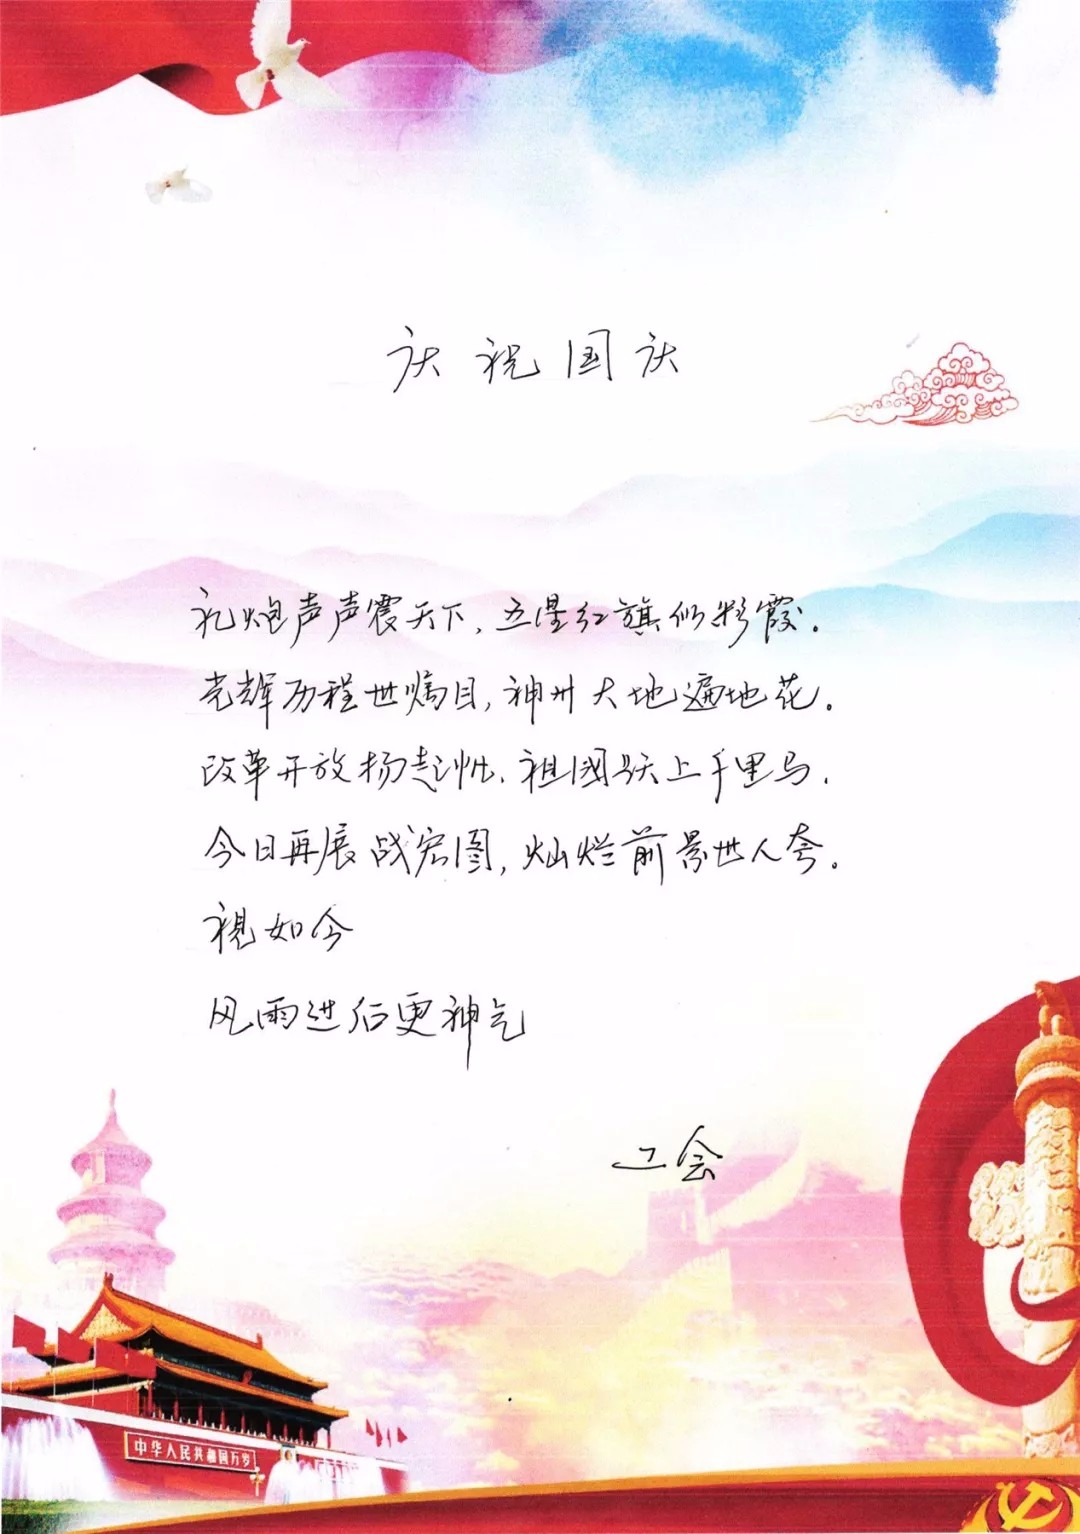 庆祝国庆
礼炮声声震天下，五星红旗似彩霞。
光辉历程世瞩目，神州大地遍地花。
改革开放扬起帆，祖国跃上千里马，
今日再展战宏图，灿烂前景世人夸。
视如今
风雨进后更神气
工会
中华人民共和国万岁